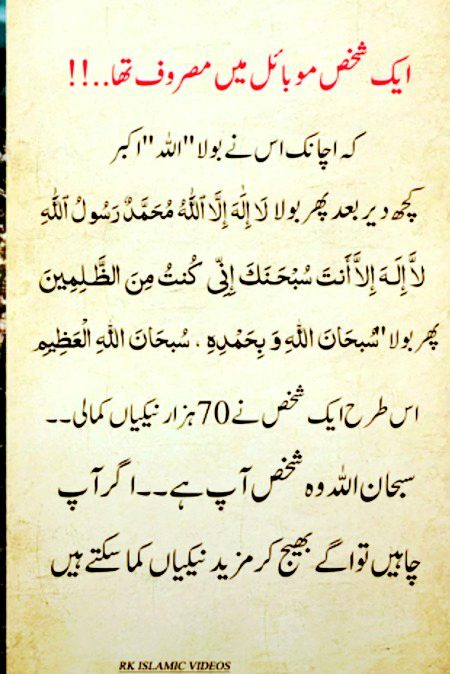 ایک شخص موبائل میں مصروف تھا..!!
کہ اچانک اس نے بولا "اللہ" اکبر
کچھ دیر بعد پھر بولا لَا إِلٰهَ إِلَّا ٱللَّٰهُ مُحَمَّدٌ رَسُولُ ٱللَّٰهِ
لاَّ إِلَهَ إِلاَّ أَنتَ سُبْحَـنَكَ إِنِّى كُنتُ مِنَ الظَّـلِمِينَ
پھر بولا "سُبحَانَ اللّٰهِ وَ بِحَمْدِهِ ، سُبحَانَ اللّٰهِ الْعَظِيمِ
اس طرح ایک شخص نے 70 ہزار نیکیاں کمالی۔۔
سبحان اللہ وہ شخص آپ ہے۔۔اگر آپ
چاہیں تو اگے بھیج کر مزید نیکیاں کما سکتے ہیں
RK ISLAMIC VIDEOS